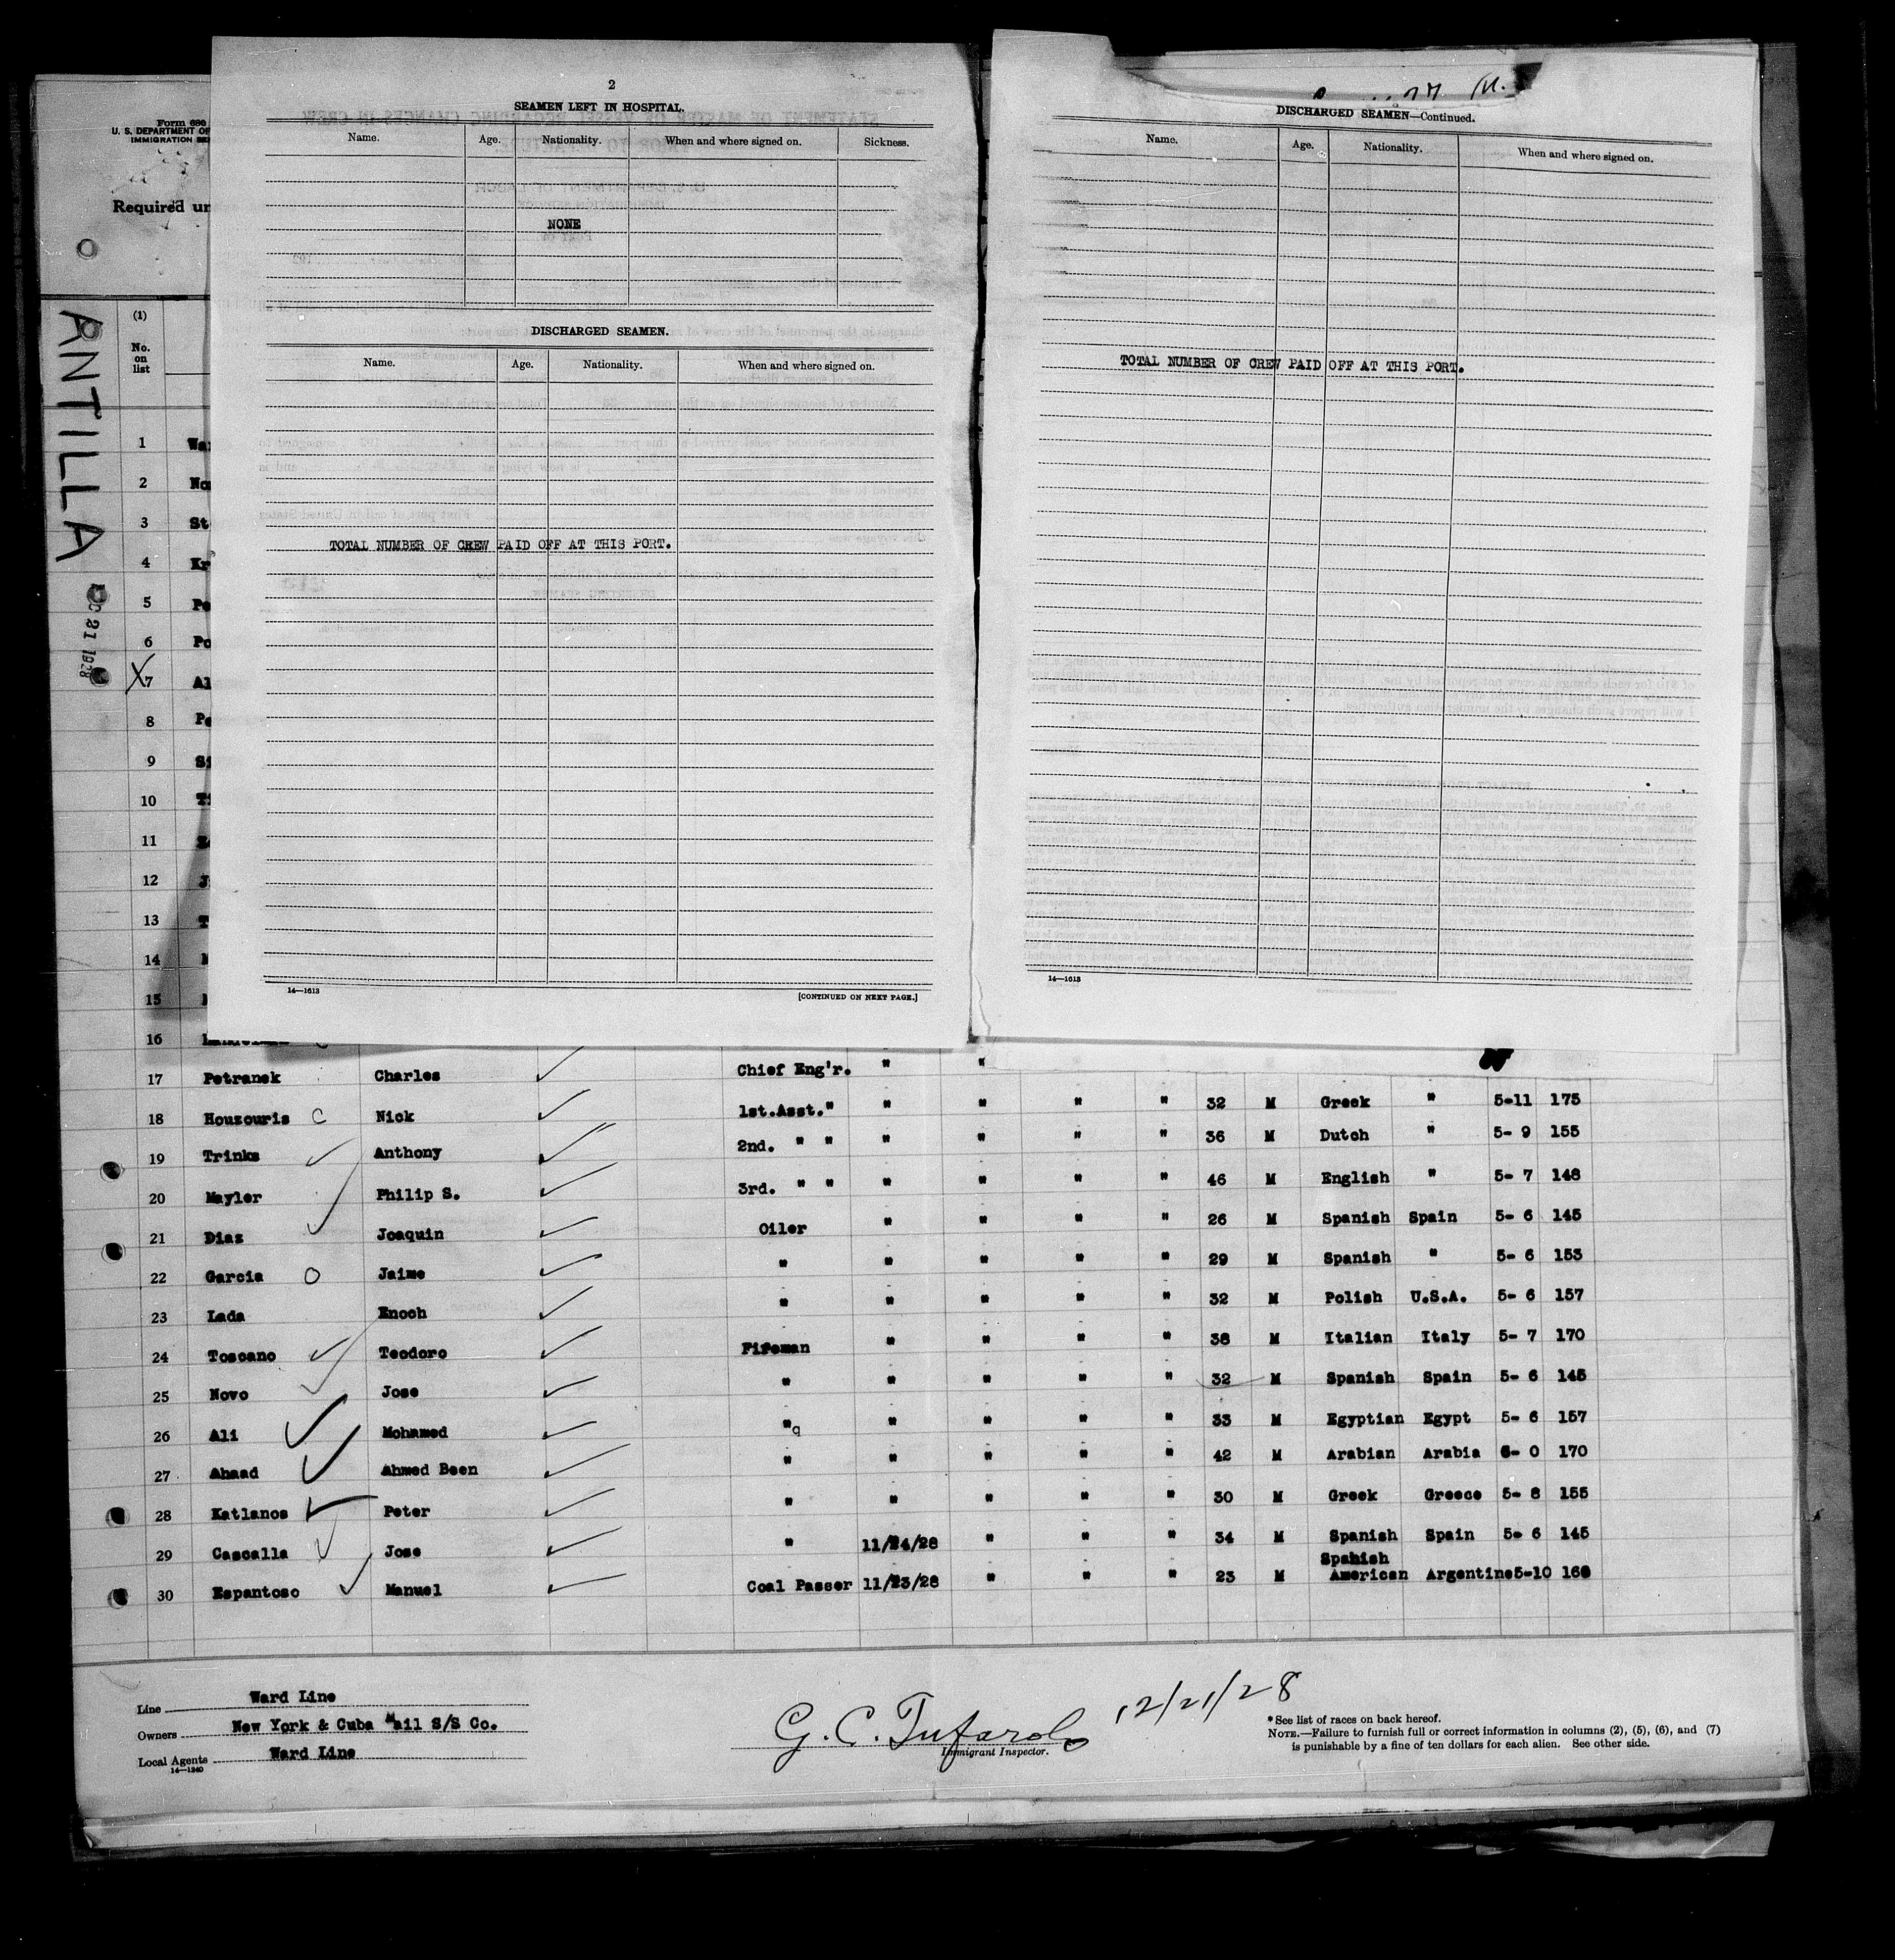 2
SEAMEN LEFT IN HOSPITAL.
Name. Age. Nationality. When and where signed on. Sickness.
NONE
DISCHARGED SEAMEN.
Name. Age. Nationality. When and where signed on.
TOTAL NUMBER OF CREW PAID OFF AT THIS PORT.
14—1613
[CONTINUED ON NEXT PAGE.]
DISCHARGED SEAMEN—Continued.
Name. Age. Nationality. When and where signed on.
TOTAL NUMBER OF CREW PAID OFF AT THIS PORT.
14—1613
Form 680
U. S. DEPARTMENT OF
IMMIGRATION
Required un
ANTILLA
21 1928
(1)
No. on list
1 War
2 No
3 St
4 Kr
5 Pe
6 Po
X7 Al
8 Pe
9 Si
10 T
11
12 J
13 T
14
15
16
17 Petranek Charles Chief Eng'r. " "
18 Houzouris C Nick 1st.Asst." " " " " 32 M Greek " 5-11 175
19 Trinks Anthony 2nd. " " " " " " 36 M Dutch " 5- 9 155
20 Mayler Philip S. 3rd. " " " " " " 46 M English " 5- 7 148
21 Diaz Joaquin Oiler " " " " 26 M Spanish Spain 5- 6 145
22 Garcia O Jaime " " " " " 29 M Spanish " 5- 6 153
23 Lada Enoch " " " " " 32 M Polish U.S.A. 5- 6 157
24 Toscano Teodoro Fireman " " " " 38 M Italian Italy 5- 7 170
25 Novo Jose " " " " " 32 M Spanish Spain 5- 6 145
26 Ali Mohamed " " " " " 33 M Egyptian Egypt 5- 6 157
27 Ahaad Ahmed Been " " " " " 42 M Arabian Arabia 6- 0 170
28 Katlanos Peter " " " " " 30 M Greek Greece 5- 8 155
29 Cascalla Jose " 11/24/28 " " " 34 M Spanish Spain 5- 6 145
30 Espantoso Manuel Coal Passer 11/23/28 " " " 23 M Spanish American Argentine 5-10 160
Line Ward Line
Owners New York & Cuba Mail S/S Co.
Local Agents Ward Line
14—1240
G. C. Tufarolo 12/21/28
Immigrant Inspector.
*See list of races on back hereof.
NOTE.—Failure to furnish full or correct information in columns (2), (5), (6), and (7)
is punishable by a fine of ten dollars for each alien. See other side.